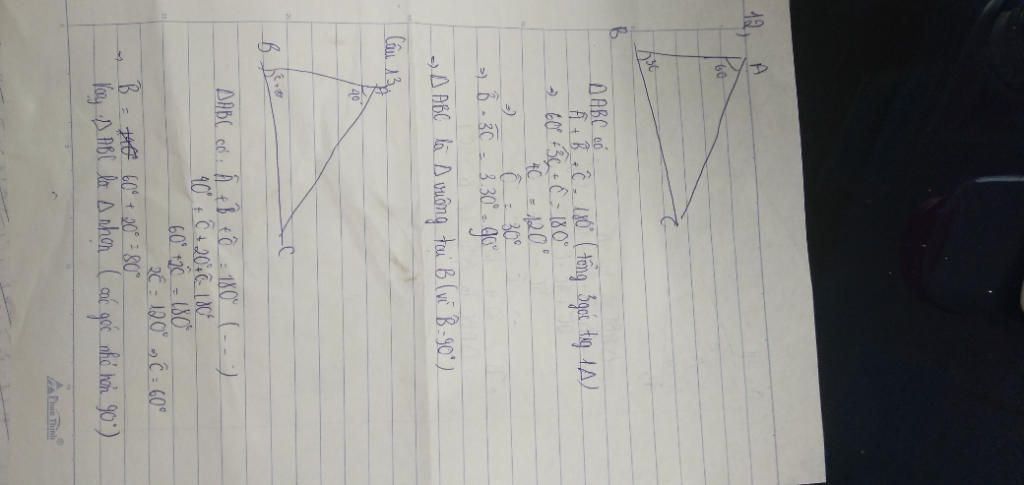 12,
A
60
B
3C
C
ΔABC có
Â + B̂ + Ĉ = 180° (tổng 3 góc trg 1Δ)
⇒ 60° + 3Ĉ + Ĉ = 180°
4C = 120°
⇒ Ĉ = 30°
⇒ B̂ = 3Ĉ = 3.30° = 90°
⇒ ΔABC là Δ vuông tại B (vì B̂ = 90°)
Câu 13,
B
40°
C
ΔABC có: Â + B̂ + Ĉ = 180° (---)
40° + Ĉ + 20° + Ĉ = 180°
60° + 2Ĉ = 180°
2Ĉ = 120° ⇒ Ĉ = 60°
⇒ B̂ = 60° + 20° = 80°
Vậy, ΔABC là Δ nhọn (các góc nhỏ hơn 90°)